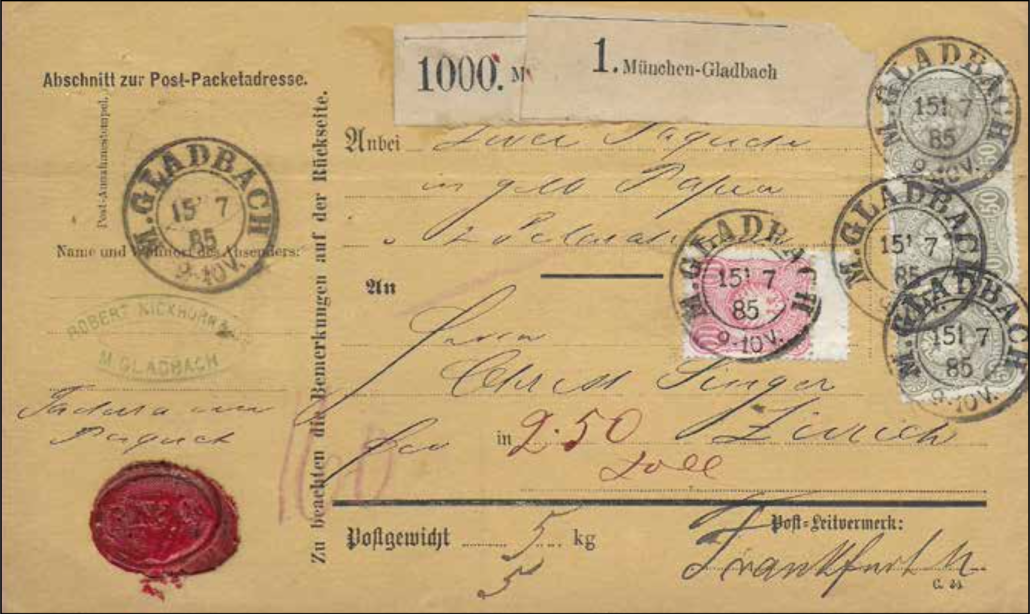 Abschnitt zur Post-Packetadresse.
Post-Annahmestempel.
M.GLADBACH
15 7
85
9-10V.
Name und Wohnort des Absenders:
ROBERT
M. GLADBACH
Zu beachten die Bemerkungen auf der Rückseite.
1000. M
1. München-Gladbach
Anbei
in gelb Papier
2
An
Herrn
Singer
in 2.50 Zürich
Zoll
160
Postgewicht 5 kg
5
Post-Leitvermerk:
Frankfurt M.
C. 44.
M.GLADBACH
15 7
85
9-10V.
M.GLADBACH
15 7
85
9-10V.
50
M.GLADBACH
15 7
85
M.GLADBACH
15 7
85
9-10V.